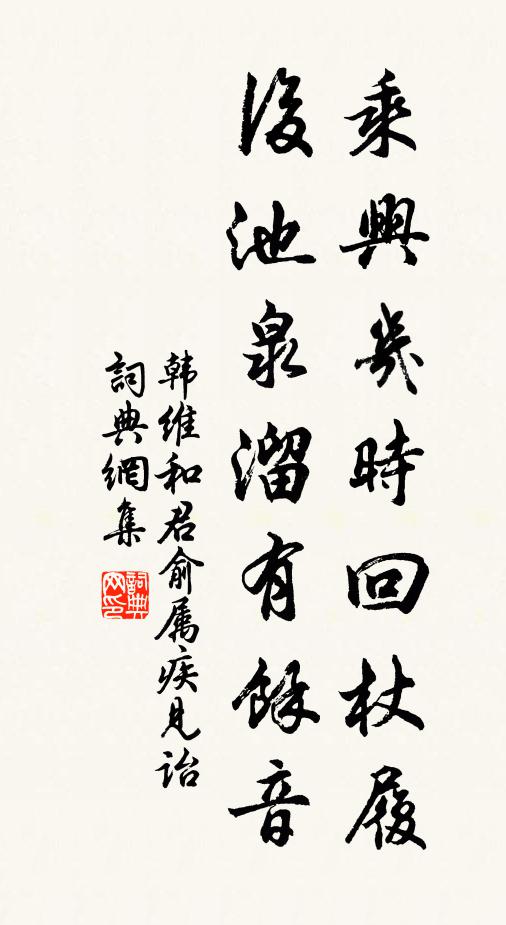 乘興幾時回杖履
後池泉溜有餘音
韩維和君俞屬疾見詒
詞典網集
詞典网印